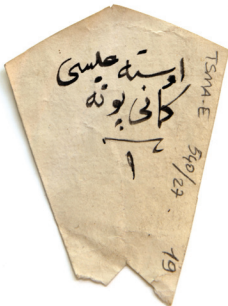 اوسته چلبسی
كانی پوته
١
TSMA-E 540/27 19